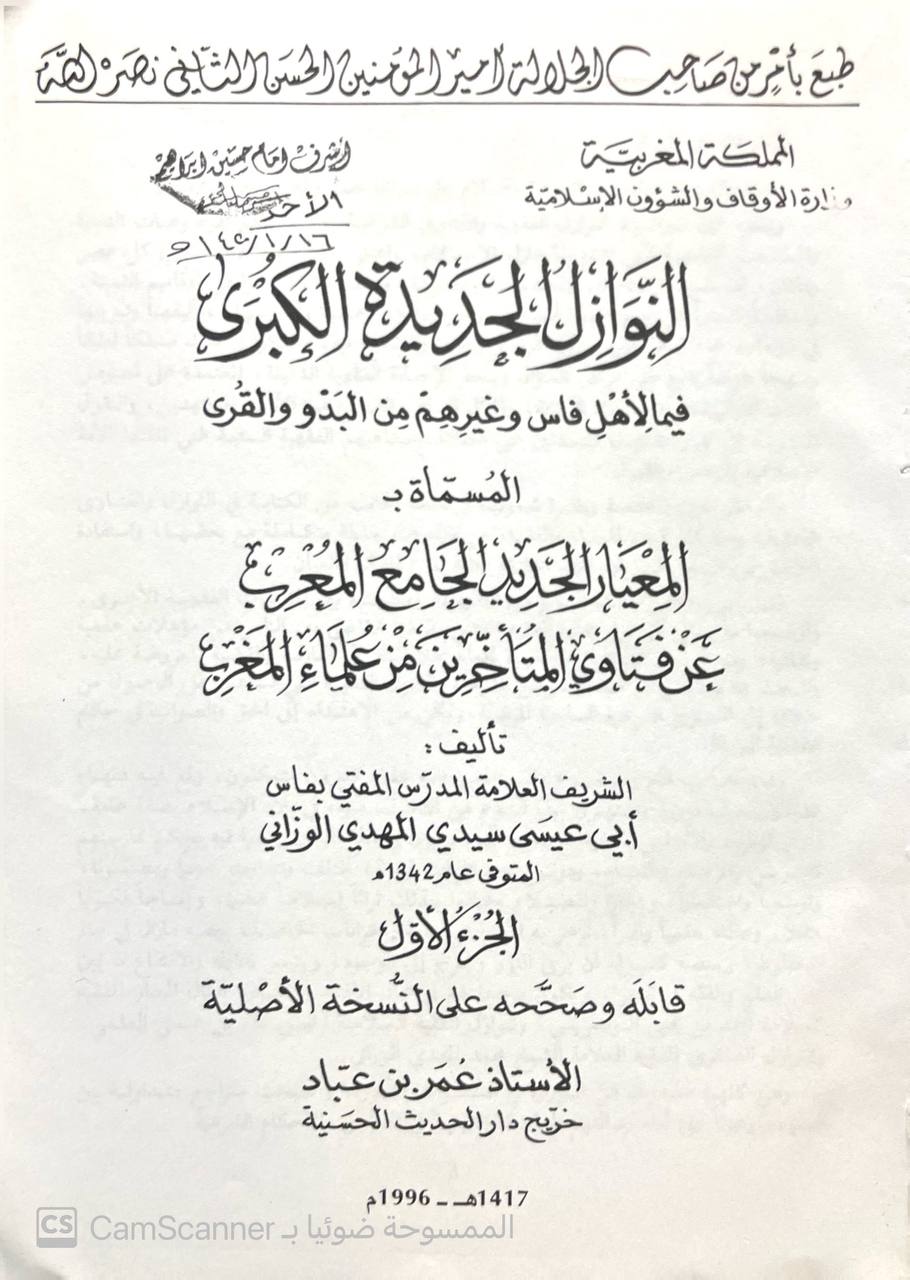 طبع بأمر من صاحب الجلالة أمير المؤمنين الحسن الثاني نصره الله
المملكة المغربية
وزارة الأوقاف والشؤون الإسلامية
أشرف إمام حسين إبراهيم
الأحد
النَّوَازِلُ الجَدِيدَة الكُبْرَى
فيما لأهْلِ فاس وغيرهمْ مِن البَدْو والقُرى
المُسمّاة بـ
المِعْيَار الجَدِيد الجَامِعَ المُعْرِب
عَنْ فَتَاوِي المُتَأخِّرِينَ مِنْ عُلمَاءِ المَغْرِب
تأليف :
الشريف العلامة المدرّس المفتي بفاس
أبي عيسى سيدي المهدي الوزّاني
المتوفى عام 1342م
الجُزْءُ الأوّل
قابَلَه وصَحَّحه على النُّسخة الأصْليّة
الأستاذ عُمَر بن عبّاد
خرّيج دار الحديث الحسَنية
1417هـ - 1996م
CS CamScanner الممسوحة ضوئيا بـ